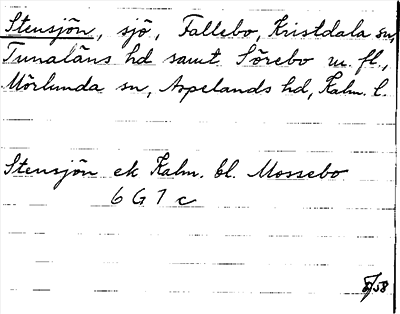 Stensjön, sjö, Fallebo, Kristdala sn,
Tunaläns hd samt Sörebo m. fl.,
Mörlunda sn, Aspelands hd, Kalm. l.
Stensjön ek Kalm. bl. Mossebo
6 G 7 c
58